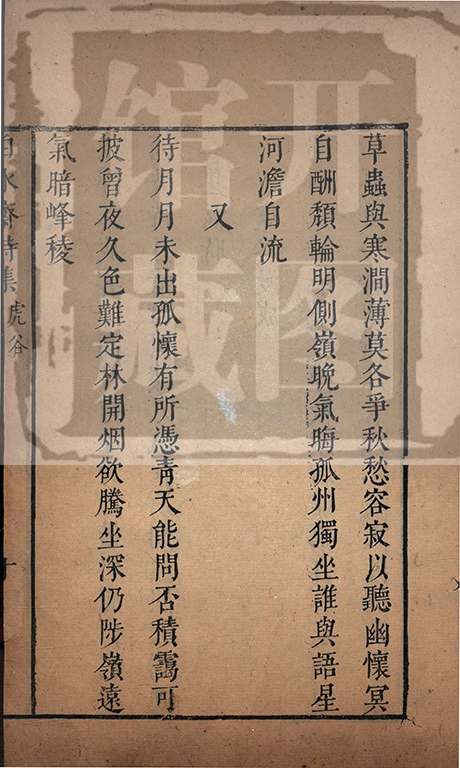 草蟲與寒澗薄莫各爭秋愁容寂以聽幽懷冥
自酬頹輪明側嶺晚氣晦孤州獨坐誰與語星
河澹自流
又
待月月未出孤懷有所憑靑天能問否積靄可
披曾夜久色難定林開烟欲騰坐深仍陟嶺遠
氣暗峰稜
白水齋詩集
虎谷
十
开图
馆藏